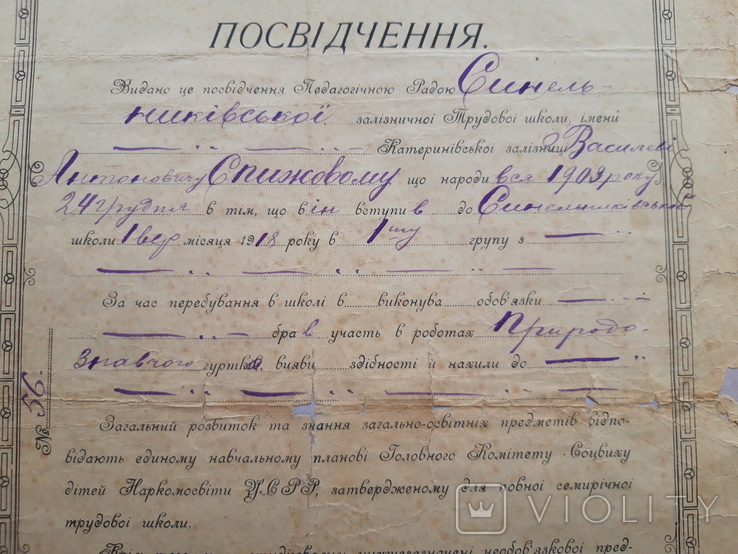 ПОСВІДЧЕННЯ.
Видано це посвідчення Педагогічною Радою Синель-
никівської залізничної Трудової школи, імени
Катеринівської залізниці Василеві
Антоновичу Спижовому що народився 1909 року
24 грудня в тім, що він вступив до Синельниківської
школи 1 вер. місяця 1918 року в 1шу групу з
За час перебування в школі в виконува обов'язки
брав участь в роботах Природо-
знавчого гуртків, вияви здібності й нахили до
№ 56.
Загальний розвиток та знання загально-освітніх предметів відпо-
відають единому навчальному планові Головного Комітету Соцвиху
дітей Наркомосвіти У.С.Р.Р., затвердженому для повної семирічної
трудової школи.
VIOLITY